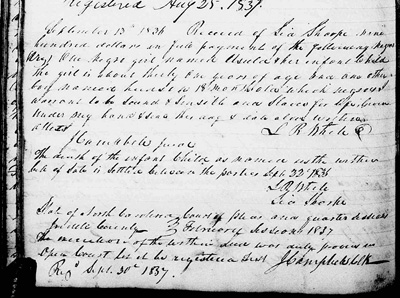 registered Aug 25. 1837.
September 13th 1836 Received of Sia Thorpe nine
hundred dollars in full payment of the following negroes
One negro girl named & her infant child
the girl is about thirty one years of age and one other
boy named 18 months old which negroes I
warrant to be sound & sensible and slaves for life. Given
under my hand & seal this day & date above written
attest L R White
J Campbell jurat
The death of the infant child as named in the within
bill of sale is settled between the parties Sept 22 1836
L R White
Sia Thorpe
State of North Carolina Court of pleas and quarter sessions
County February Sessions 1837
The execution of the within deed was duly proven in
Open Court let it be registered Test J Campbell clk
Regd Sept. 30th 1837.